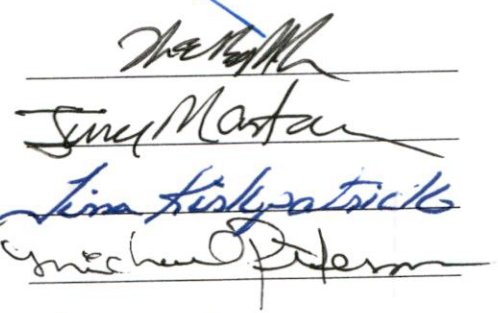 Jerry Martan
Tina Kirkpatrick
Michael Peterson